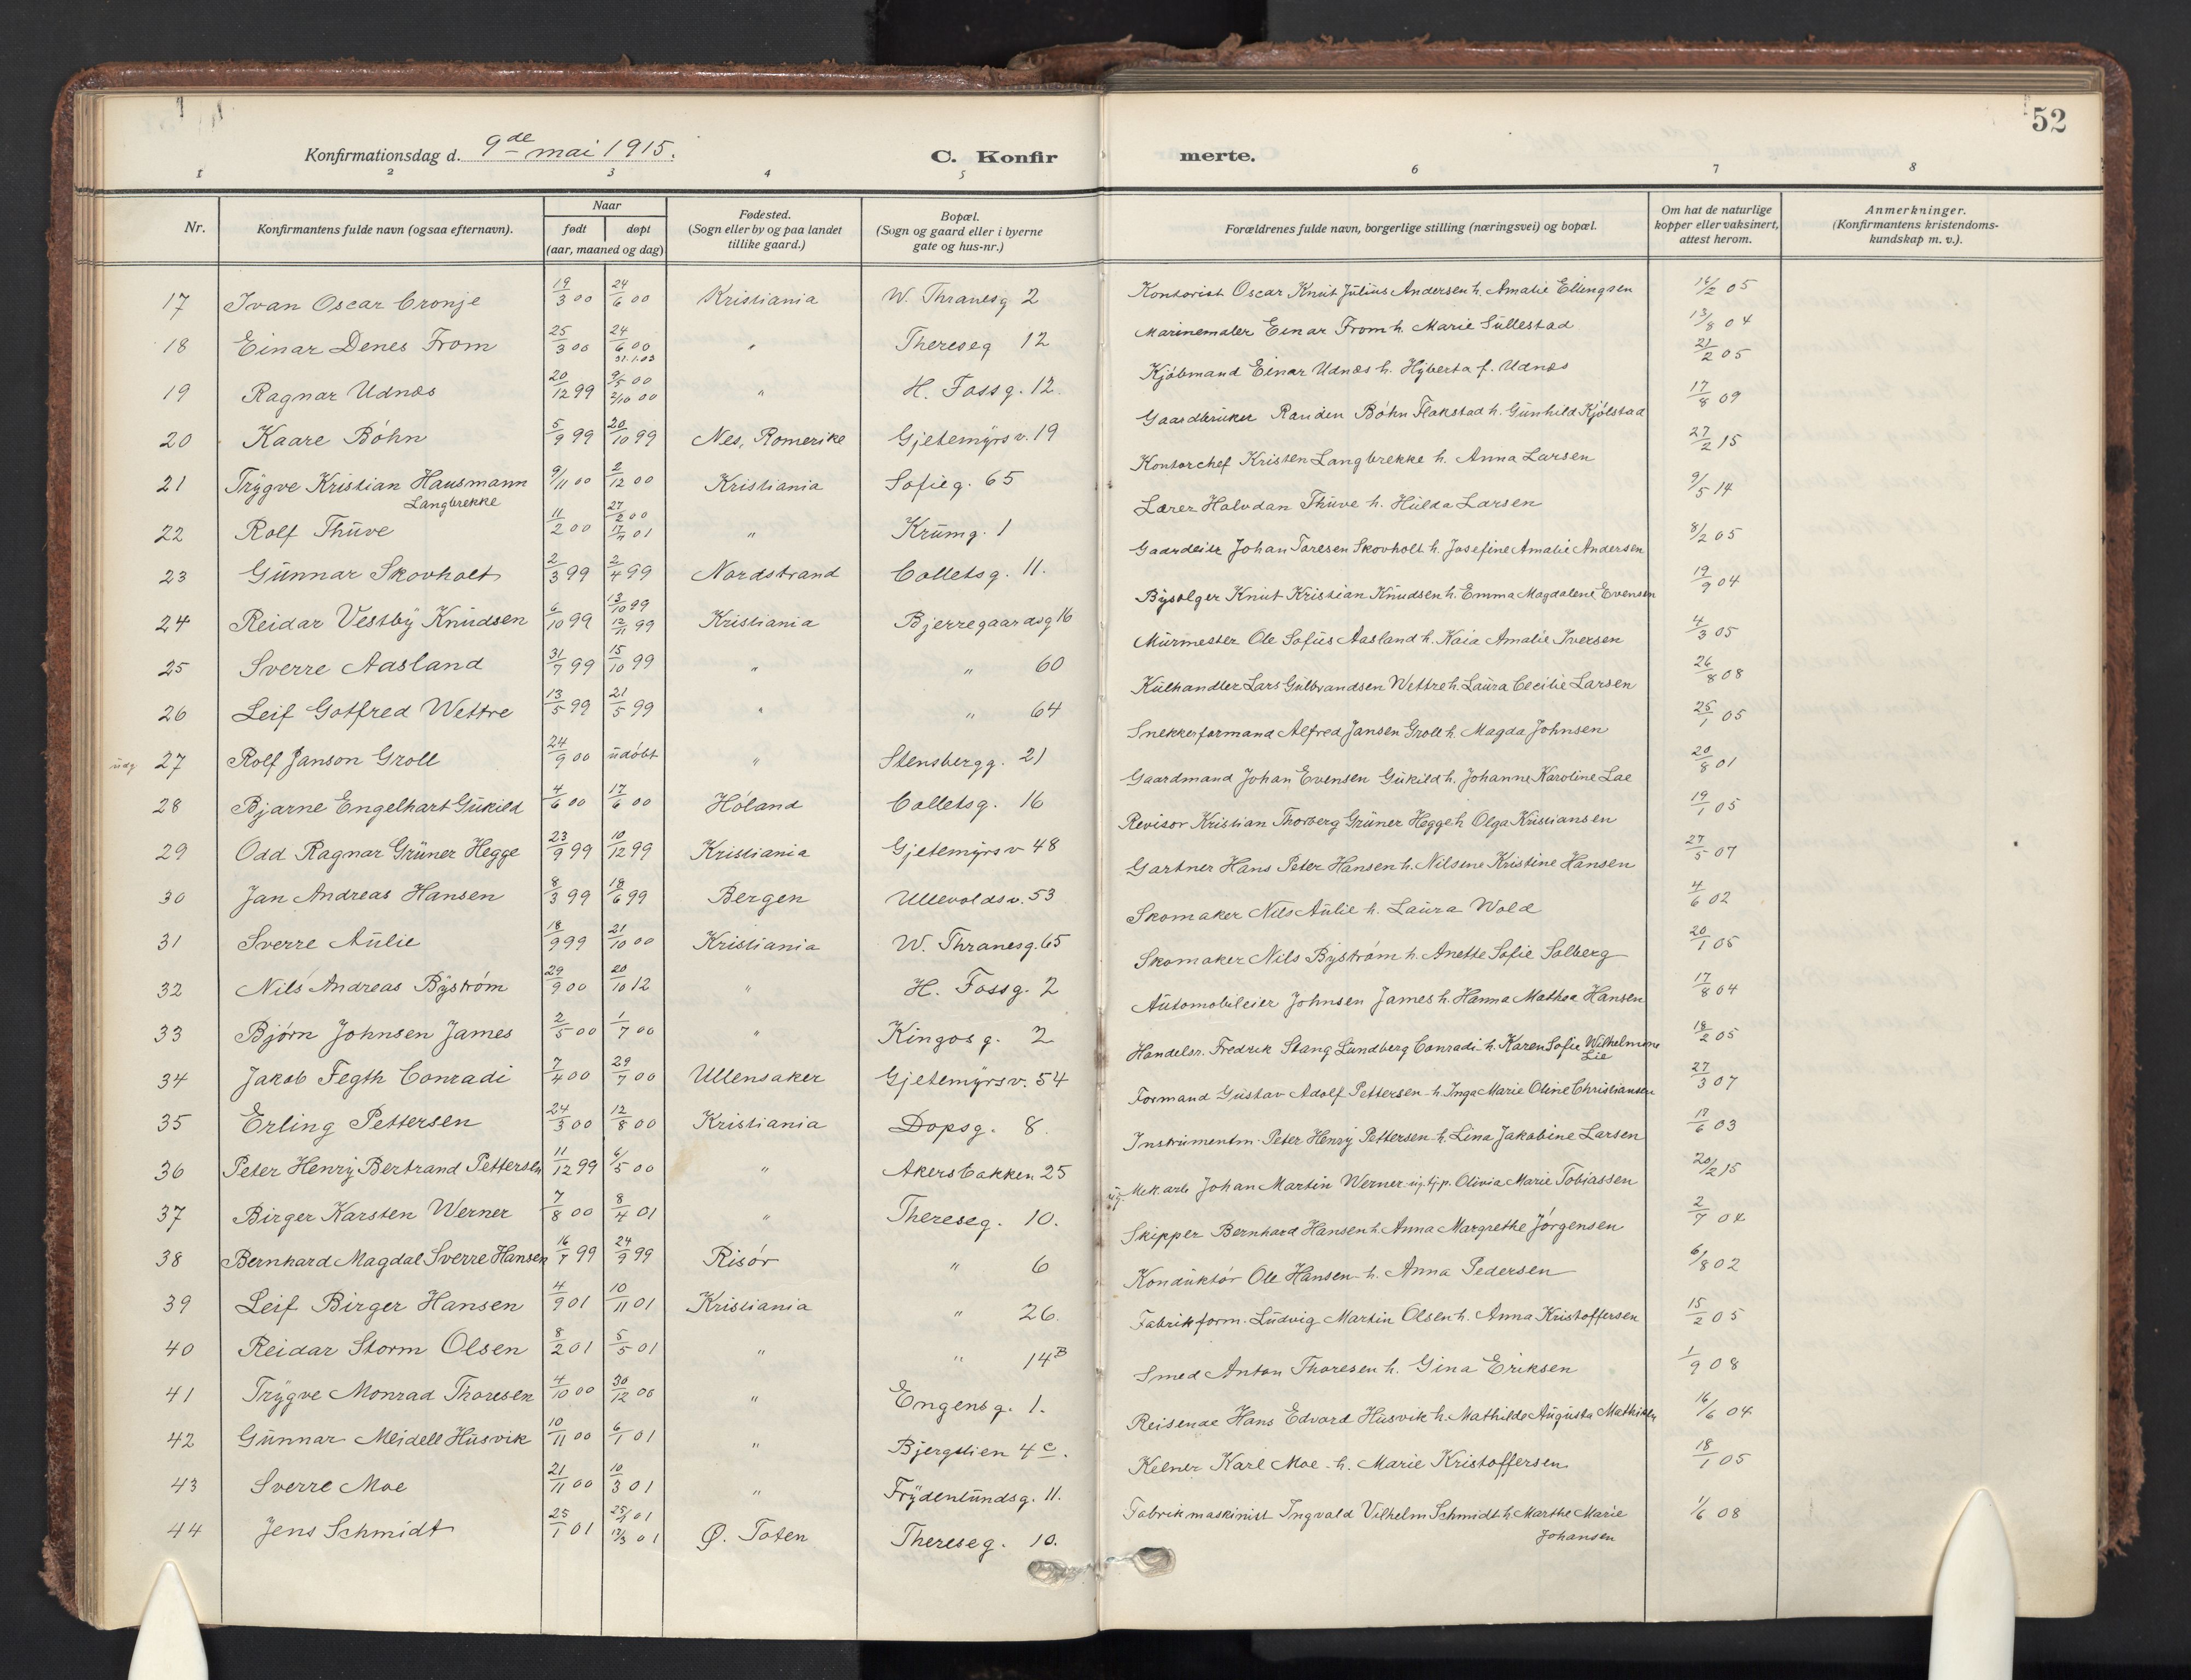 52
Konfirmationsdag d. 9de mai 1915.
C. Konfirmerte.
1 2 3 4 5 6 7 8
Nr. Konfirmantens fulde navn (ogsaa efternavn). Naar født døpt (aar, maaned og dag) Fødested. (Sogn eller by og paa landet tillike gaard.) Bopæl. (Sogn og gaard eller i byerne gate og hus-nr.) Forældrenes fulde navn, borgerlige stilling (næringsvei) og bopæl. Om hat de naturlige kopper eller vaksinert, attest herom. Anmerkninger. (Konfirmantens kristendoms- kundskap m. v.).
17 Ivan Oscar Cronje 19/3 00 24/6 00 Kristiania W. Thranesg 2 Kontorist Oscar Knut Julius Andersen h. Amalie Ellingsen 16/2 05
18 Einar Denes From 25/3 00 24/6 00 31.1.03 " Thereseg 12 Marinemaler Einar From h. Marie Sullestad 13/8 04
19 Ragnar Udnæs 20/12 99 9/5 00 2/10 00 " H. Fossg. 12. Kjøbmand Einar Udnæs h. Hyberta f. Udnæs 21/2 05
20 Kaare Bøhn 5/9 99 20/10 99 Nes, Romerike Gjetemyrsv. 19 Gaardbruker Randen Bøhn Flakstad h. Gunhild Kjølstad 17/8 09
21 Trygve Kristian Hausmann Langbrekke 9/11 00 2/12 00 Kristiania Sofieg. 65 Kontorchef Kristen Langbrekke h. Anna Larsen 27/2 15
22 Rolf Thuve 11/2 00 27/2 00 17/7 01 " Krumg. 1 Lærer Halvdan Thuve h. Hulda Larsen 9/5 14
23 Gunnar Skovholt 2/3 99 2/4 99 Nordstrand Colletsg. 11. Gaardeier Johan Toresen Skovholt h. Josefine Amalie Andersen 8/2 05
24 Reidar Vestby Knudsen 6/10 99 13/10 99 12/11 99 Kristiania Bjerregaardsg 16 Bysælger Knut Kristian Knudsen h. Emma Magdalene Evensen 19/9 04
25 Sverre Aasland 31/7 99 15/10 99 " " 60 Murmester Ole Sofus Aasland h. Kaia Amalie Iversen 4/3 05
26 Leif Gotfred Wettre 13/5 99 21/5 99 " " 64 Kulhandler Lars Gulbrandsen Wettre h. Laura Cecilie Larsen 26/8 08
udg 27 Rolf Janson Groll 24/9 00 udøbt " Stensbergg. 21 Snekkerformand Alfred Jansen Groll h. Magda Johnsen 25/1 05
28 Bjarne Engelhart Gukild 4/6 00 17/6 00 Høland Colletsg. 16 Gaardmand Johan Evensen Gukild h. Johanne Karoline Lae 20/8 01
29 Odd Ragnar Grüner Hegge 23/9 99 10/12 99 Kristiania Gjetemyrsv 48 Revisor Kristian Thorberg Grüner Hegge h Olga Kristiansen 19/1 05
30 Jan Andreas Hansen 8/3 99 18/6 99 Bergen Ullevoldsv. 53 Gartner Hans Peter Hansen h. Nilsine Kristine Hansen 27/5 07
31 Sverre Aulie 18/9 99 21/10 00 Kristiania W. Thranesg. 65 Skomaker Nils Aulie h. Laura Wold 4/6 02
32 Nils Andreas Bystrøm 29/9 00 20/10 12 " H. Fossg. 2 Skomaker Nils Bystrøm h. Anette Sofie Solberg 20/1 05
33 Bjørn Johnsen James 2/5 00 1/7 00 " Kingosg. 2 Automobileier Johnsen James h. Hanna Mathea Hansen 17/8 04
34 Jakob Fegth Conradi 7/4 00 29/7 00 Ullensaker Gjetemyrsv. 54 Handelsr. Fredrik Stang Lundberg Conradi h. Karen Sofie Wilhelmine Lie 18/2 05
35 Erling Pettersen 24/3 00 12/8 00 Kristiania Dopsg. 8. Formand Gustav Adolf Pettersen h. Inga Marie Oline Christiansen 27/3 07
36 Peter Henry Bertrand Pettersen 11/12 99 6/5 00 " Akersbakken 25 Instrumentm. Peter Henry Pettersen h. Lina Jakobine Larsen 17/6 03
37 Birger Karsten Werner 7/8 00 8/4 01 " Thereseg. 10. ug. Mek. arb Johan Martin Werner ug. tj.p. Olivia Marie Tobiassen 20/2 15
38 Bernhard Magdal Sverre Hansen 16/7 99 24/9 99 Risør " 6 Skipper Bernhard Hansen h. Anna Margrethe Jørgensen 2/7 04
39 Leif Birger Hansen 4/9 01 10/11 01 Kristiania " 26. Konduktør Ole Hansen h. Anna Pedersen 6/8 02
40 Reidar Storm Olsen 8/2 01 5/5 01 " " 14B Fabrikform. Ludvig Martin Olsen h. Anna Kristoffersen 15/2 05
41 Trygve Monrad Thoresen 4/10 00 30/12 00 " Engensg. 1. Smed Anton Thoresen h. Gina Eriksen 1/9 08
42 Gunnar Meidell Husvik 10/11 00 6/1 01 " Bjergslien 4c. Reisende Hans Edvard Husvik h. Mathilde Augusta Mathisen 16/6 04
43 Sverre Moe 21/11 00 10/3 01 " Frydenlundsg. 11. Kelner Karl Moe h. Marie Kristoffersen 18/1 05
44 Jens Schmidt 25/1 01 25/1 01 17/3 01 Ø. Toten Thereseg. 10. Fabrikmaskinist Ingvald Vilhelm Schmidt h Marthe Marie Johansen 1/6 08